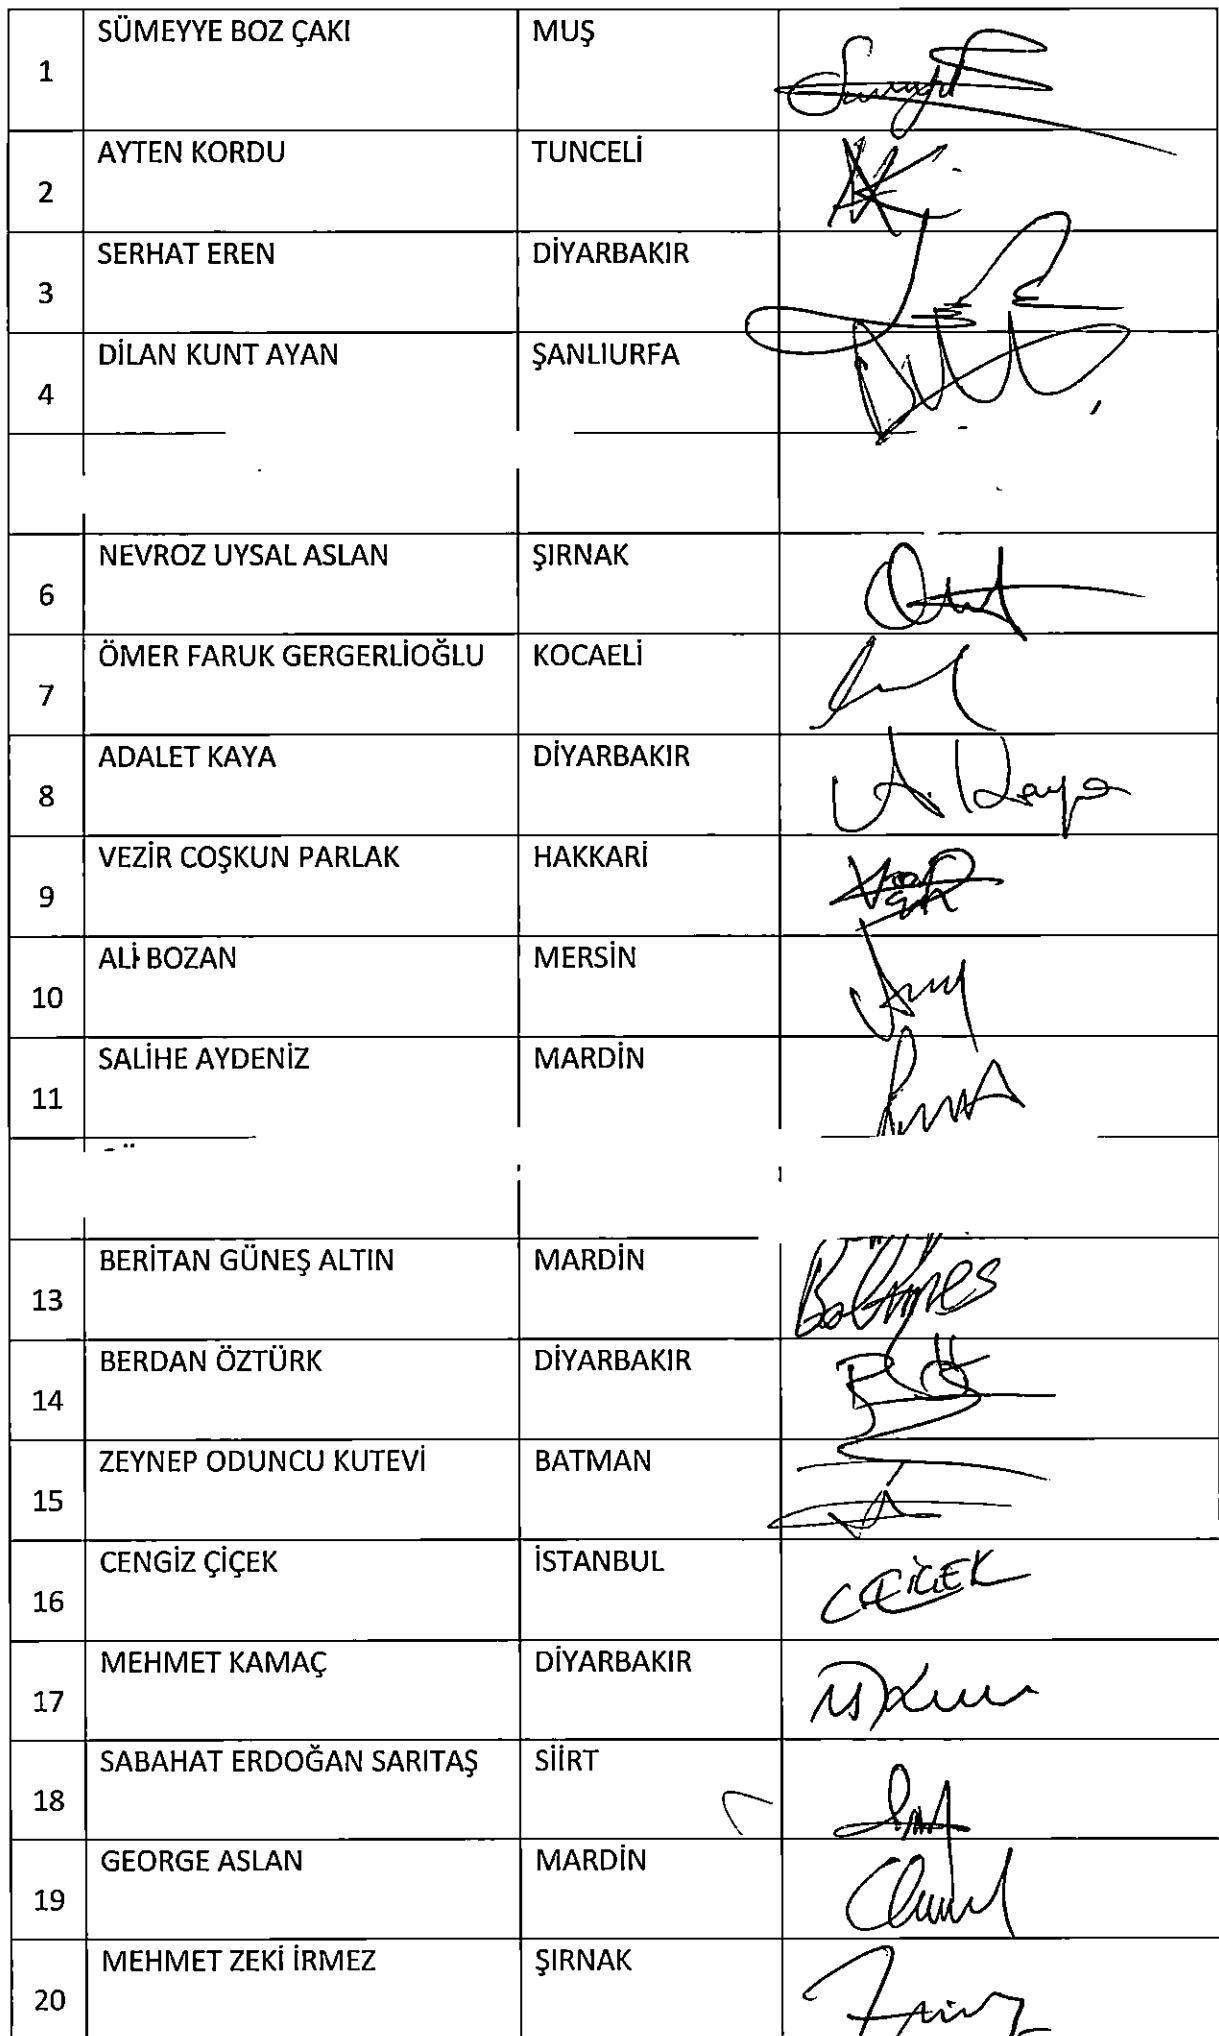 1 SÜMEYYE BOZ ÇAKI MUŞ
2 AYTEN KORDU TUNCELİ
3 SERHAT EREN DİYARBAKIR
4 DİLAN KUNT AYAN ŞANLIURFA
6 NEVROZ UYSAL ASLAN ŞIRNAK
7 ÖMER FARUK GERGERLİOĞLU KOCAELİ
8 ADALET KAYA DİYARBAKIR A. Kaya
9 VEZİR COŞKUN PARLAK HAKKARİ
10 ALİ BOZAN MERSİN
11 SALİHE AYDENİZ MARDİN
13 BERİTAN GÜNEŞ ALTIN MARDİN
14 BERDAN ÖZTÜRK DİYARBAKIR
15 ZEYNEP ODUNCU KUTEVİ BATMAN
16 CENGİZ ÇİÇEK İSTANBUL
17 MEHMET KAMAÇ DİYARBAKIR
18 SABAHAT ERDOĞAN SARITAŞ SİİRT
19 GEORGE ASLAN MARDİN
20 MEHMET ZEKİ İRMEZ ŞIRNAK